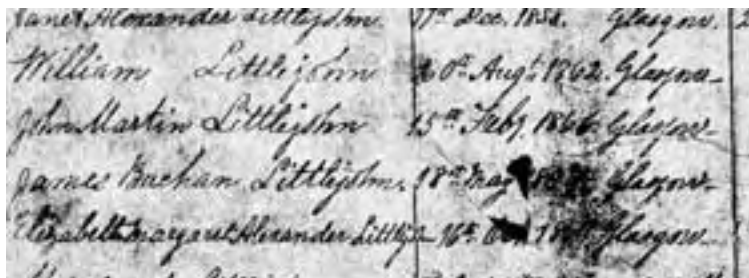 Janet Alexander Littlejohn. 17th Dec. 1858. Glasgow.
William Littlejohn 20th Augt. 1862. Glasgow
John Martin Littlejohn 15th Feby. 1866. Glasgow
James Buchan Littlejohn, 18th May Glasgow
Elizabeth Margaret Alexander Littlejn 16th Glasgow